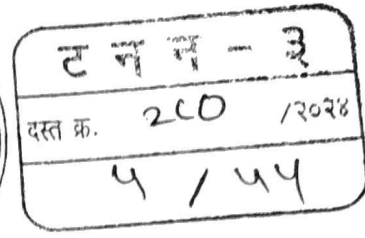 ट न न - ३
दस्त क्र. २८० /२०२४
५ / ५५